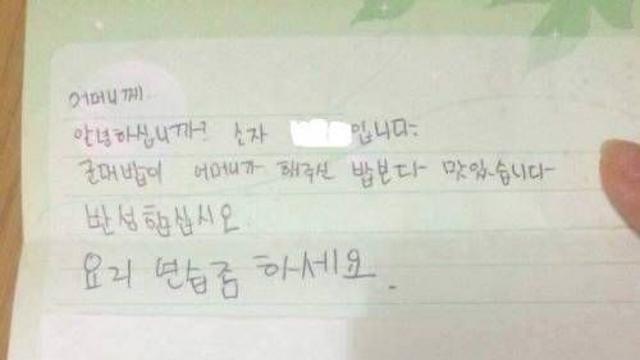 어머니께.
안녕하십니까? 소자 입니다.
군대밥이 어머니가 해주신 밥보다 맛있습니다
반성합십시오
요리 연습좀 하세요.